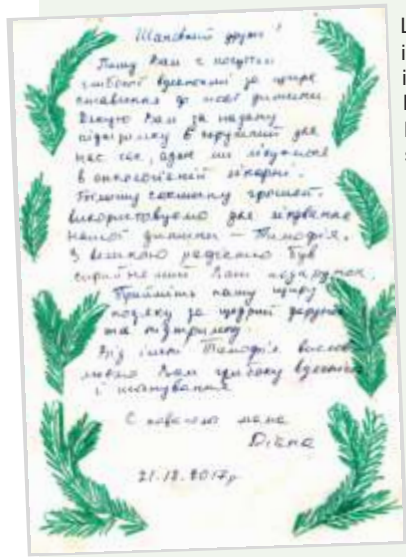 Шановний друже!
Пишу Вам с почуттям
глибокої вдячності за щире
ставлення до моєї дитини
Дякую Вам за надану
підтримку в скрутний для
нас час, адже ми лікуємося
в онкологічній лікарні.
грошей
використовуємо для лікування
нашої дитини – Тимофія.
З великою радістю був
сприйнятий Ваш подарунок.
Прийміть нашу щиру
подяку за щедрий дарунок
та підтримку.
Від імені Тимофія вислов-
люємо Вам глибоку вдячність
і шанування
С повагою мама
Діана
21.12.2017р